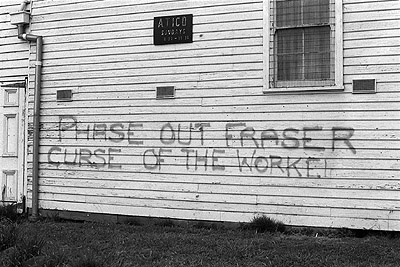 ATICO
SUNDAYS
PHASE OUT FRASER
CURSE OF THE WORKE!